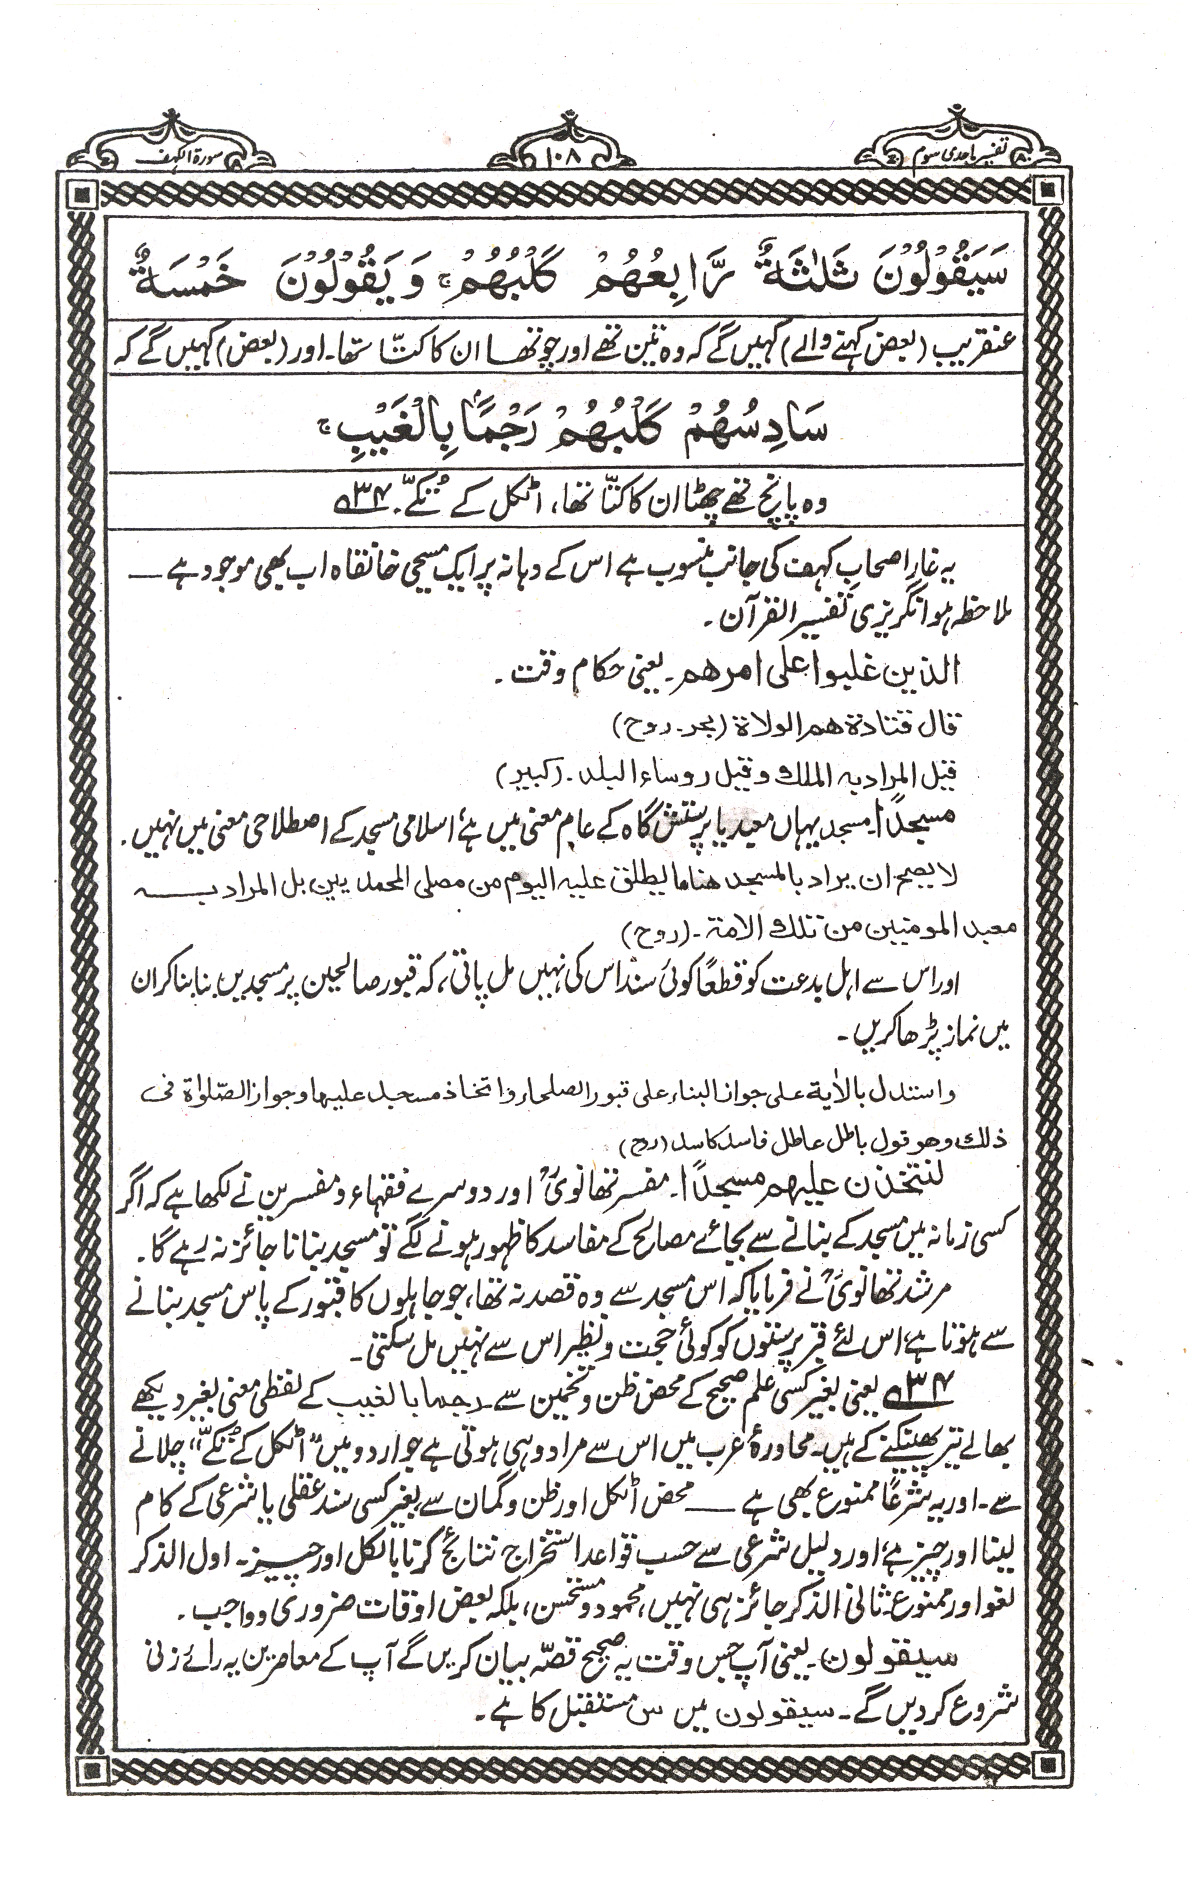 تفسیر ماجدی سوم
۱۰۸
سورۃ الکہف
سَيَقُوْلُوْنَ ثَلٰثَةٌ رَّابِعُهُمْ كَلْبُهُمْ ۚ وَيَقُوْلُوْنَ خَمْسَةٌ
عنقریب (بعض کہنے والے) کہیں گے کہ وہ تین تھے اور چوتھا ان کا کتّا تھا۔ اور (بعض) کہیں گے کہ
سَادِسُهُمْ كَلْبُهُمْ رَجْمًۢا بِالْغَيْبِ ۚ
وہ پانچ تھے چھٹا ان کا کتّا تھا، اٹکل کے تُکّے۔ ۳۴
یہ غار اصحابِ کہف کی جانب منسوب ہے اس کے دہانہ پر ایک مسیحی خانقاہ اب بھی موجود ہے —
ملاحظہ ہو انگریزی تفسیر القرآن۔
الذین غلبوا علی امرھم۔ یعنی حکام وقت۔
قال قتادة ھم الولاة (بحر۔ روح)
قیل المراد بہ الملک وقیل روساء البلد۔ (کبیر)
مسجدًا۔ مسجد یہاں معبد یا پرستش گاہ کے عام معنی میں ہے، اسلامی مسجد کے اصطلاحی معنی میں نہیں۔
لا یصح ان یراد بالمسجد ھنا ما یطلق علیہ الیوم من مصلی المحمدیین بل المراد بہ
معبد المومنین من تلک الامة۔ (روح)
اور اس سے اہل بدعت کو قطعًا کوئی سند اس کی نہیں مل پاتی، کہ قبور صالحین پر مسجدیں بنا بنا کر ان
میں نماز پڑھا کریں۔
واستدل بالاٰیة علی جواز البناء علی قبور الصلحاء واتخاذ مسجد علیھا وجواز الصّلٰواة فی
ذلک وھو قول باطل عاطل فاسد کاسد (روح)
لنتخذن علیھم مسجدًا۔ مفسر تھانویؒ اور دوسرے فقہاء و مفسرین نے لکھا ہے کہ اگر
کسی زمانہ میں مسجد کے بنانے سے بجائے مصالح کے مفاسد کا ظہور ہونے لگے تو مسجد بنانا جائز نہ رہے گا۔
مرشد تھانویؒ نے فرمایا کہ اس مسجد سے وہ قصد نہ تھا، جو جاہلوں کا قبور کے پاس مسجد بنانے
سے ہوتا ہے، اس لئے قبر پرستوں کو کوئی حجت و نظیر اس سے نہیں مل سکتی۔
۳۴ یعنی بغیر کسی علم صحیح کے محض ظن و تخمین سے۔ رجما بالغیب کے لفظی معنی بغیر دیکھے
بھالے تیر پھینکنے کے ہیں۔ محاورۂ عرب میں اس سے مراد وہی ہوتی ہے جو اردو میں ”اٹکل کے تُکّے“ چلانے
سے۔ اور یہ شرعًا ممنوع بھی ہے — محض اٹکل اور ظن و گمان سے بغیر کسی سند عقلی یا شرعی کے کام
لینا اور چیز ہے، اور دلیل شرعی سے حسب قواعد استخراج نتائج کرنا بالکل اور چیز۔ اول الذکر
لغو اور ممنوع۔ ثانی الذکر جائز ہی نہیں، محمود و مستحسن، بلکہ بعض اوقات ضروری و واجب۔
سیقولون۔ یعنی آپ جس وقت یہ صحیح قصّہ بیان کریں گے آپ کے معاصرین یہ رائے زنی
شروع کر دیں گے۔ سیقولون میں س مستقبل کا ہے۔